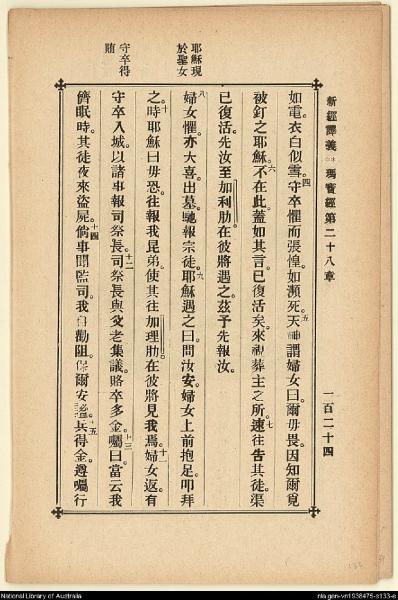 新經譯義 瑪竇經第二十八章 一百二十四
如電衣白似雪。四守卒懼而張惶。如瀕死。五天神謂婦女曰爾毋畏。因知爾覓
被釘之耶穌。六不在此。蓋如其言。已復活矣。來視葬主之所。七速往告其徒。渠
已復活。先汝至加利肋。在彼將遇之。茲予先報汝。
八婦女懼。亦大喜。出墓。馳報宗徒。九耶穌遇之曰。問汝安。婦女上前抱足。叩拜
之。十時耶穌曰毋恐。往報我昆弟。使其往加理肋。在彼將見我焉。十一婦女返。有
守卒入城。以諸事報司祭長。十二司祭長與父老集議。賂卒多金。十三囑曰。當云我
儕眠時。其徒夜來盜屍。十四倘事聞監司。我自勸阻。保爾安謐。十五兵得金。遵囑行
耶穌現
於聖女
守卒得
賄
National Library of Australia
nla.gen-vn1938475-s133-e